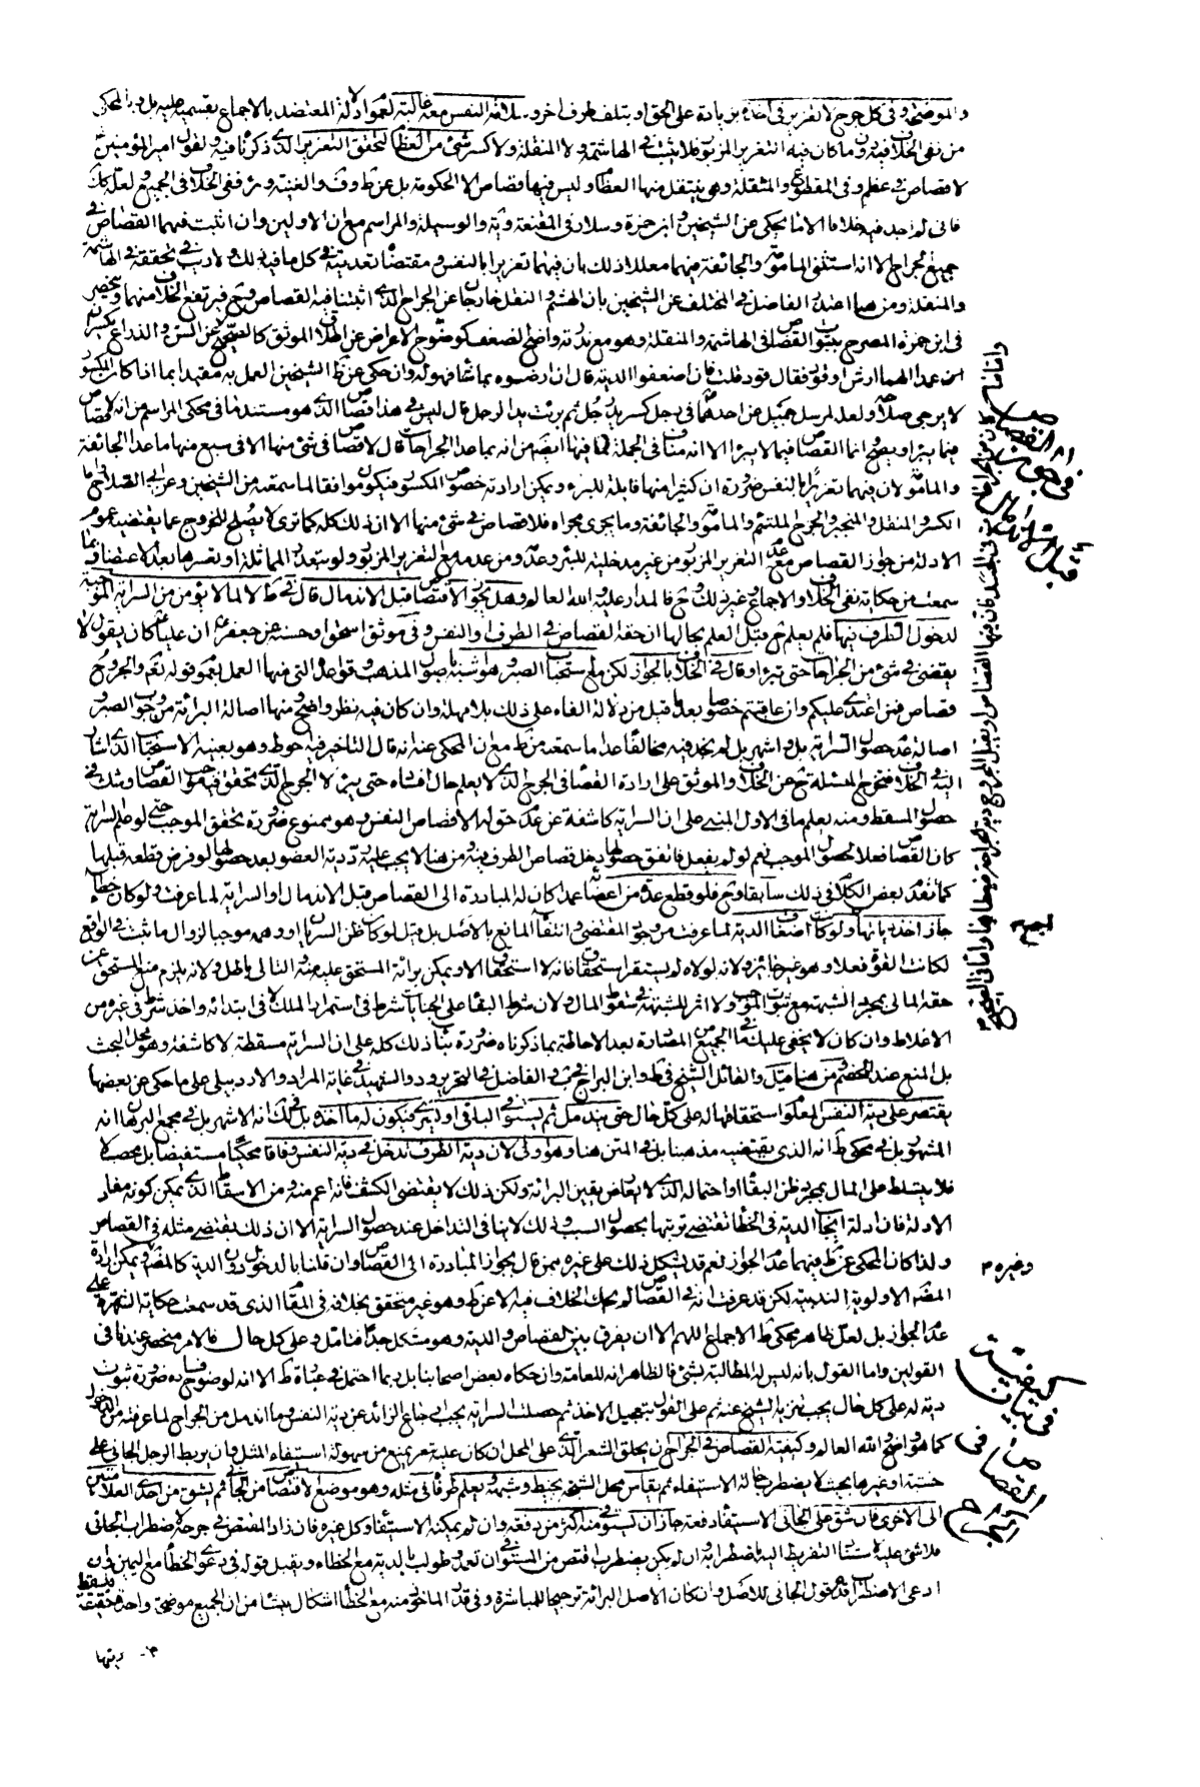 والموضحة وفي كل جرح لا تغرير في اخذه بزيادة على الحق او بتلف طرف اخر وسلامة النفس معه غالبة لعموم ادلة المعتضد بالاجماع بقسميه عليه بل وبالمحكي
من نفي الخلاف فيه دون ما كان فيه التغرير المزبور فلا يثبت في الهاشمة ولا المنقلة ولا كسر شئ من العظام لتحقق التغرير الذي ذكرنا فيه ولقول امير المؤمنين
لا قصاص في عظم وفي المقطوع والمنقلة وهي ينتقل منها العظام وليس فيها قصاص الا الحكومة بل عن ط وف والغنية وئر نفي الخلاف في الجميع لعله كك
فاني لم اجد فيه خلافا الا ما يحكى عن الشيخين وابن حمزة وسلار في المقنعة وية والوسيلة والمراسم مع ان الاولين وان اثبت فيهما القصاص في
جميع الجراح الا انه استثنى المامومة والجائفة منهما معللا ذلك بان فيهما تغريرا بالنفس ومقتضاه تعديته في كل ما فيه ذلك ولا ريب في تحققه في الهاشمة
والمنقلة ومن هنا اعتذر الفاضل في المختلف عن الشيخين بان الهشم والنقل خارجان عن الجراح الذي اثبتنا فيه القصاص وح فيرتفع الخلاف منهما وينحصر
في ابن حمزة المصرح بثبوت القصاص في الهاشمة والمنقلة وهو مع ندرته واضح الضعف كوضوح الاعراض عن الموثق كالصحيح عن السن والذراع يكسران
عمدا الهما ارش او قود فقال قود قلت فان اضعفوا الدية قال ان ارضوه بما شاء فهو له وان حكي عن ظ الشيخين العمل به مقيدا بما اذا كان المكسور
لا يرجى صلاحه ولعله لمرسل جميل عن احدهما في رجل كسر يد رجل ثم برئت يد الرجل قال ليس في هذا قصاص الذي هو مستندنا في محكي المراسم من انه لا قصاص
فيما يبرء ويصح انما القصاص فيما لا يبرء الا انه مناف في الجملة لما فيها ايضا من انه بما عدا الجراحات قال لا قصاص في شئ منها الا في سبع منها ما عدا الجائفة
والمامومة لان فيهما تغريرا بالنفس ضرورة ان كثيرا منها قابلة للبرء ويمكن ارادته خصوص المكسور فيكون موافقا لما سمعته من الشيخين وعن ابي الصلاح
الكسر والمنقل والمنجبر والجرح الملتئم والمامومة والجائفة وما يجرى مجراه فلا قصاص في شئ منها الا ان ذلك كله كما ترى لا يصلح للخروج عما يقتضيه عموم
الادلة من جواز القصاص مع عدم التغرير المزبور من غير مدخلية للبرء وعدمه ومن عدمه مع التغرير المزبور ولو تعذر المماثلة او تعسرها بعد الاعتضاد بما
سمعت من حكاية نفي الخلاف والاجماع وغير ذلك وح فالمدار عليه والله العالم وهل يجوز الاقتصاص قبل الاندمال قال في ط لا لما لا يؤمن من السراية الموجبة
لدخول الطرف فيها فلم يعلم ح قبل العلم بحالها ان حقه القصاص في الطرف او النفس وفي موثق اسحق او حسنه عن جعفر ع ان عليا ع كان يقول لا
يقضى في شئ من الجراحات حتى تبرأ وقال في الخلاف بالجواز لكن مع استحباب الصبر وهو اشبه باصول المذهب وقواعده التي منها العمل بعموم قوله تعالى والجروح
قصاص فمن اعتدى عليكم وان عاقبتم خصوصا بعد ما قيل من دلالة الفاء على ذلك بلا مهلة وان كان فيه نظر واضح ومنها اصالة البرائة من وجوب الصبر
اصالة عدم حصول السراية بل هو اشهر بل لم نجد فيه مخالفا عدا ما سمعته من ط مع ان المحكي عنه انه قال التاخير فيه احوط وهو بعينه الاستحباب الذي اشار
اليه في الخلاف فتخرج المسئلة ح عن الخلاف والموثق على ارادة القصاص في الجرح الذي لا يعلم حال افساده حتى يبرء لا الجرح الذي تحقق فيه موجب القصاص ويشك في
حصول المسقط ومنه يعلم ما في الاول المبني على ان السراية كاشفة عن عدم حق له الا قصاص النفس وهو ممنوع ضرورة تحقق الموجب حتى لو علم السراية
كان القصاص فعلا لحصول الموجب نعم لو لم يفعل فاتفق حصولها دخل قصاص الطرف فيه ومن هنا لا يجب عليه رد دية العضو بعد حصولها لو فرض قطعه قبلها
كما تقدم بعض الكلام في ذلك سابقا وح فلو قطع عدة من اعضائه عمدا كان له المبادرة الى القصاص قبل الاندمال او السراية لما عرفت ولو كان خطأ
جاز اخذ دياتها ولو كانت اضعاف الدية لما عرفت من وجود المقتضي وانتفاء المانع بالاصل بل قيل لو كان ظن السريان او وهمه موجبا لزوال ما ثبت في الواقع
لكانت القود فعلا وهو غير جائز ولانه لولاه لم يستقر استحقاق فانه لا استحقاق الا ويمكن برائة المستحق عليه منه والتالي باطل ولانه يلزم منع المستحق عن
حقه المالي بمجرد الشبهة مع ثبوت الموجب ولا اثر للشبهة في سقوط المال ولان شرط البقاء على الجنايات شرط في استمرار الملك لا في ابتدائه واخذ شرط في غيره من
الاغلاط وان كان لا يخفى عليك ما في الجميع من المصادرة بعد الاحاطة بما ذكرناه ضرورة بناء ذلك كله على ان السراية مسقطة لا كاشفة وهو محل البحث
بل المنع عند الخصم ومن هنا قيل والقائل الشيخ في ط وابن البراج في محكي والفاضل في التحرير ود والشهيد في غاية المراد والاردبيلي على ما حكي عن بعضها
يقتصر على دية النفس المعلوم استحقاقها له على كل حال حتى يندمل ثم يستوفي الباقي او يسري فيكون له ما اخذه بل في لك انه الاشهر بل في مجمع البرهان انه
المشهور بل في محكي ط انه الذي يقتضيه مذهبنا بل في المتن هنا وهو اولى لان دية الطرف تدخل في دية النفس وفاقا محكيا مستفيضا بل محصلا
فلا يتسلط على المال بمجرد ظن البقاء او احتماله الذي لا يعارض يقين البرائة ولكن ذلك لا يقتضي الكشف فانه اعم منه ومن الاسقاط الذي يمكن كونه مفاد
الادلة فان ادلة ايجاب الدية في الخطأ تقتضي ترتبها بحصول السبب وذلك لا ينافي التداخل عند حصول السراية الا ان ذلك يقتضي مثله في القصاص
ولذا كان المحكي عن ط فيهما عدم الجواز نعم قد يشكل ذلك على غيره ممن قال بجواز المبادرة الى القصاص وان قلنا بالدخول دون الدية كالمصنف ويمكن ارادة
المصنف الاولوية الندبية لكن قد عرفت انه في القصاص لم يحك الخلاف فيه الا عن ط وهو غير متحقق بخلافه في المقام الذي قد سمعت حكاية الشهرة على
عدم الجواز بل لعل ظاهر محكي ط الاجماع اللهم الا ان يفرق بين القصاص والدية وهو مشكل جدا فتامل وعلى كل حال فالامر منحصر عندنا في
القولين واما القول بانه ليس له المطالبة بشئ فالظاهر انه للعامة وان حكاه بعض اصحابنا بل ربما احتمل في عبارة ط الا انه لوضوح فساده ضرورة ثبوت
دية له على كل حال يجب تنزيه الشيخ عنه ثم على القول بتعجيل الاخذ ثم حصلت السراية يجب ارجاع الزائد عن دية النفس وما اندمل من الجراح لما عرفته من الدخول
كما هو واضح والله العالم وكيفية القصاص في الجراح ان يحلق الشعر الذي على المحل ان كان عليه شعر يمنع من سهولة استيفاء المثل وان يربط الرجل الجاني على
خشبة او غيرها بحيث لا يضطرب حالة الاستيفاء ثم يقاس محل الشجة بخيط وشبهه ويعلم طرفاه في مثله وهو موضع الاقتصاص من الجاني ثم يشق من احدى العلامتين
الى الاخرى فان شق على الجاني الاستيفاء دفعة جاز ان يستوفي منه اكثر من دفعة وان لم يمكنه الاستيفاء وكل غيره فان زاد المقتص في جرحه لاضطراب الجاني
فلا شئ عليه لاستناد التفريط اليه باضطرابه وان لم يكن يضطرب اقتص من المستوفي ان تعمد وطولب بالدية مع الخطاء ويقبل قوله في دعوى الخطأ مع اليمين وان
ادعى الاضطراب قدم قول الجاني للاصل وان كان الاصل البرائة ترجيحا للمباشرة وفي قدر الماخوذ منه مع الخطأ اشكال ينشا من ان الجميع موضحة واحدة فيقسط
ديتها
في جواز القصاص
قبل الاندمال
وغيره م
في بيان كيفية
القصاص في
الجراح